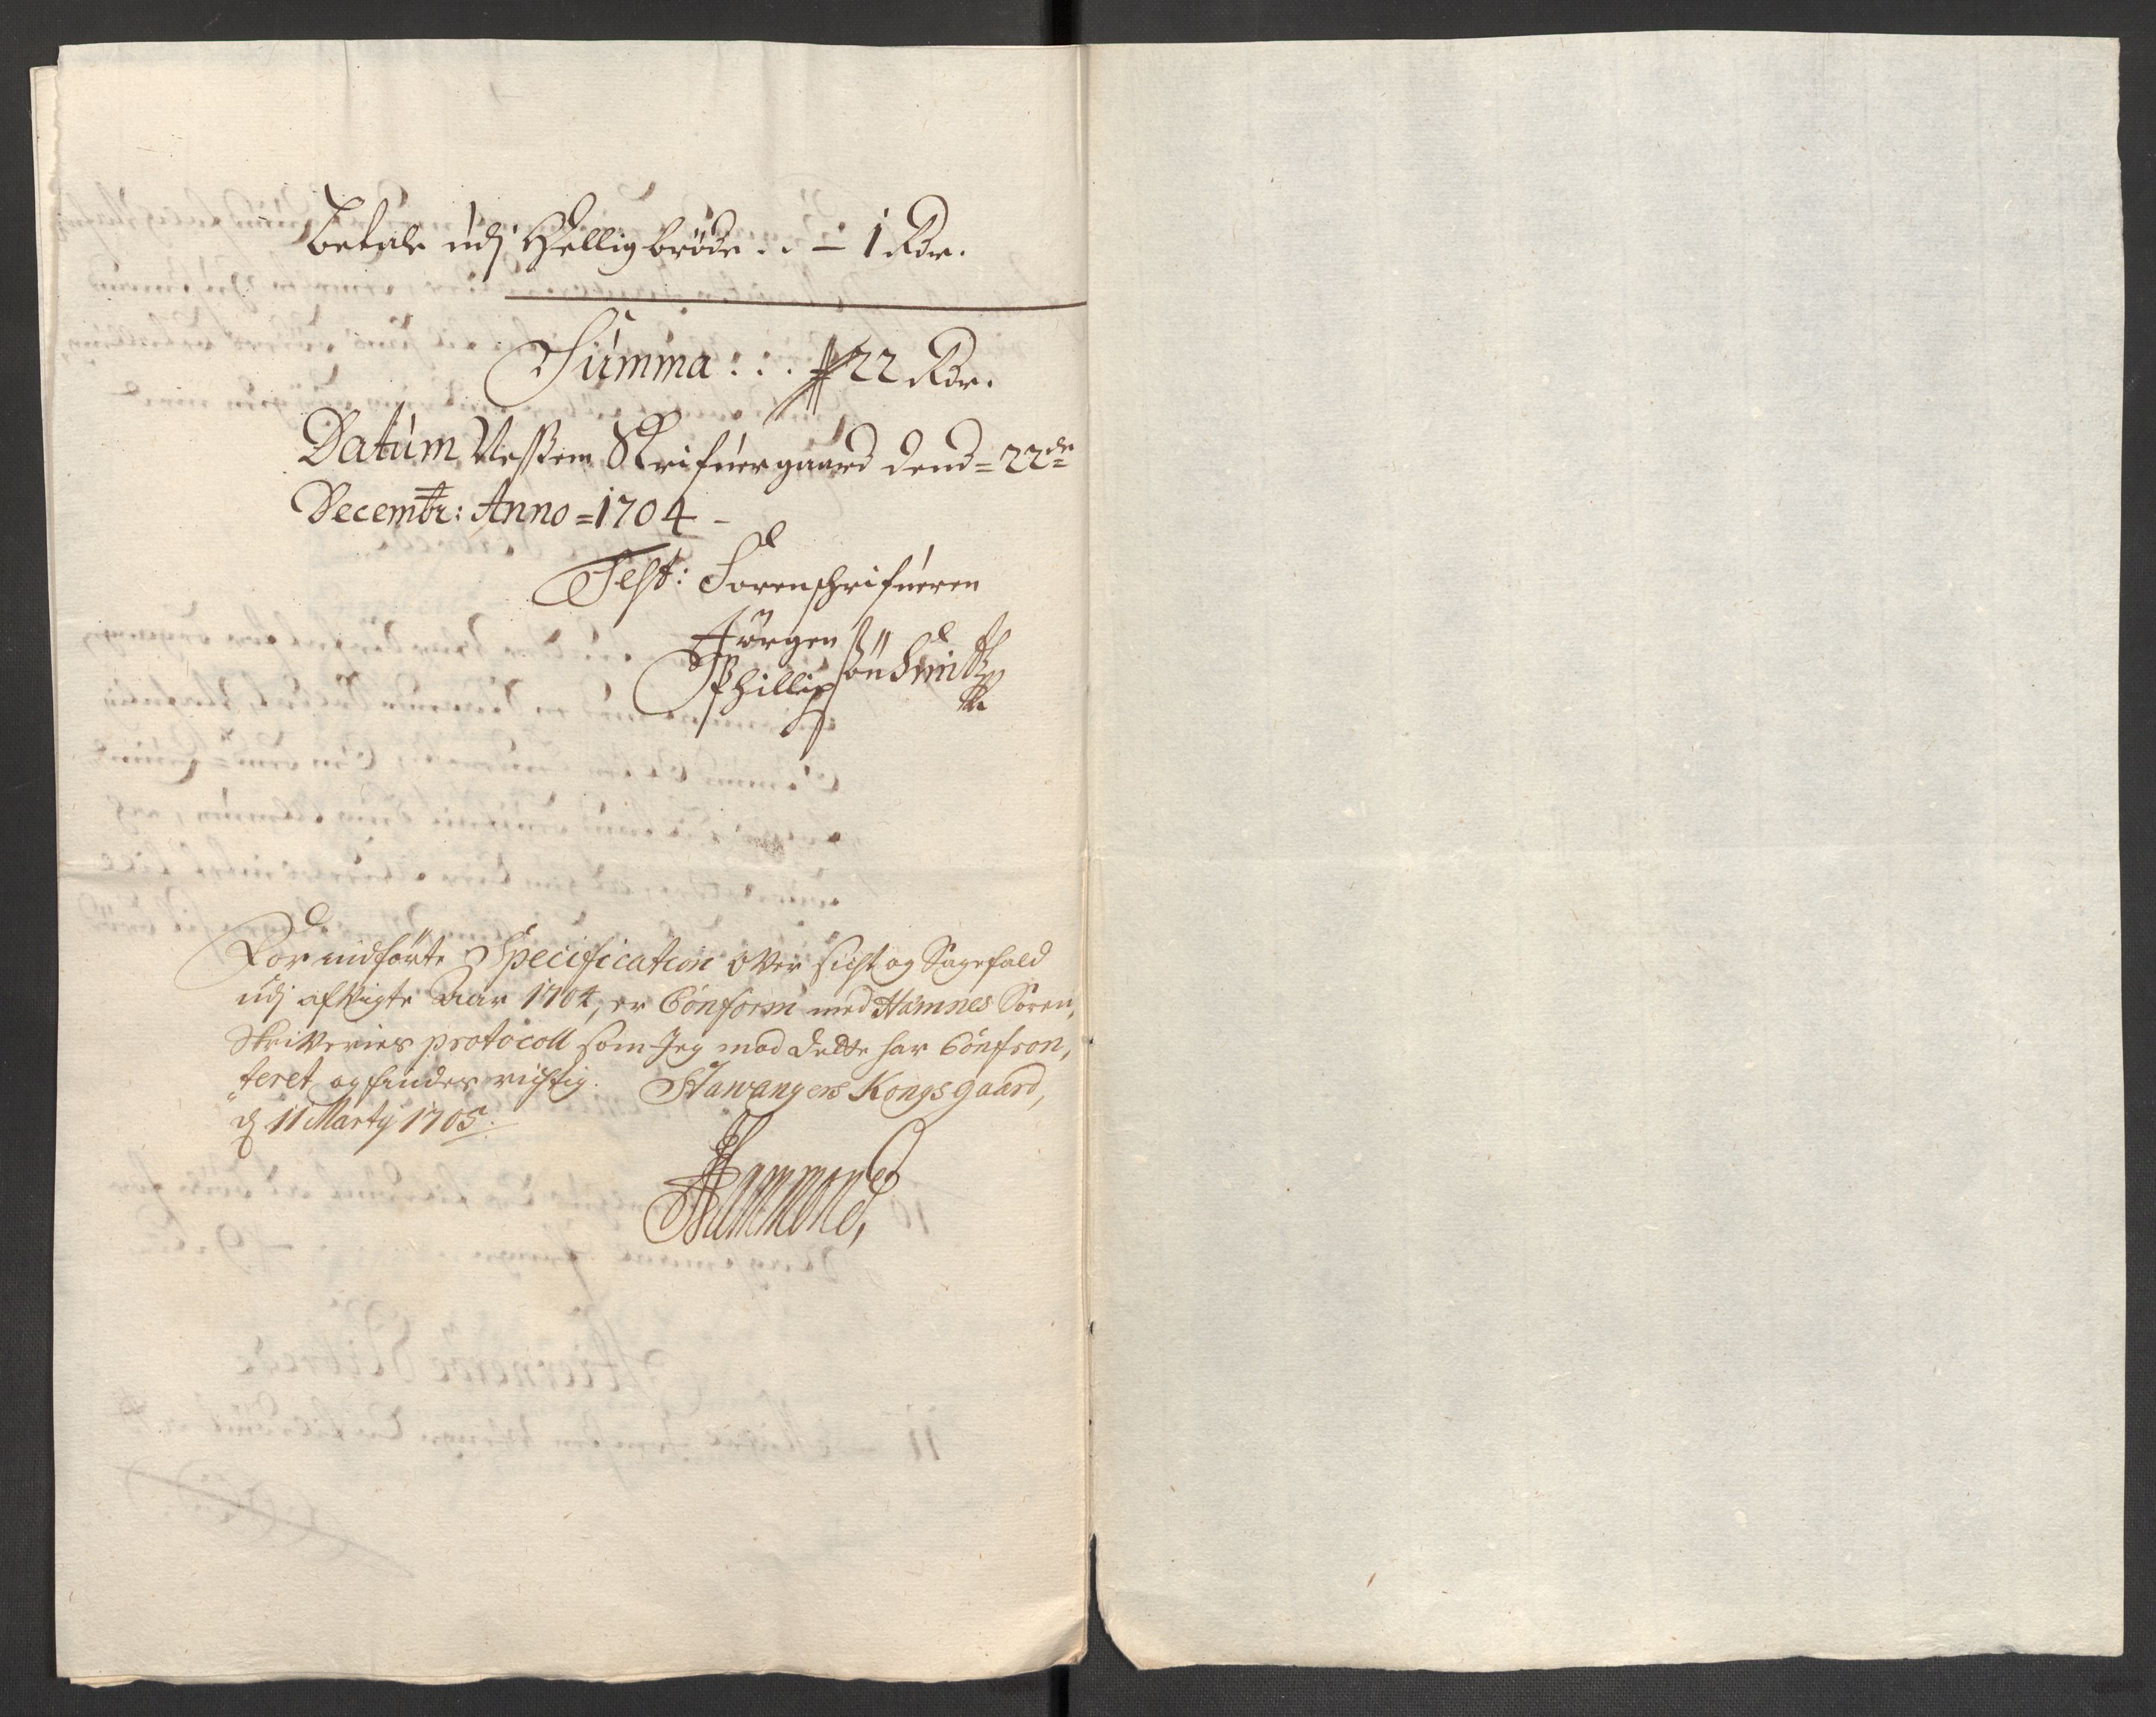 betale udj Helligbröde . . – 1 Rdr.
Summa : : . 22 Rdr.
Datum Neßem Skrifuergaard dend = 22de
Decembr: Anno = 1704 –
Test: Sorenschrifueren
Jürgen
Phillip Sön Smith
Forindförte Specification over sigt og Sagefald
udj afvigte Aar 1704, er Conform med Hamnes Soren,
Skriveries protocoll som Jeg mod dette har Confron,
teret og findes rigtig. Stawangers Kongsgaard,
d 11 Marty 1705.
Hammond,